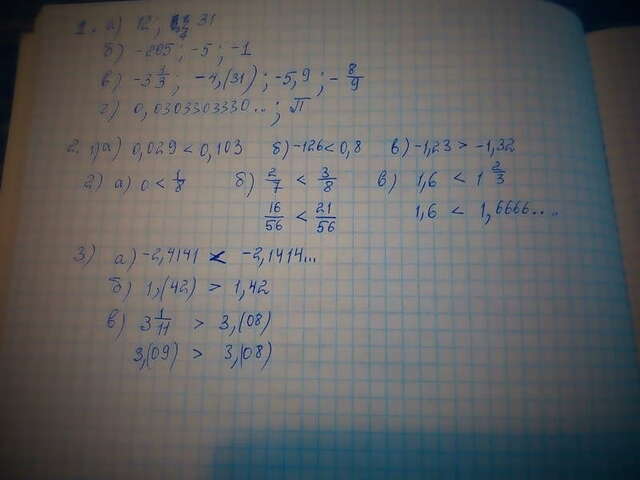 1. а) 12; 31
б) -205; -5; -1
в) -3 1/3; -4,(31); -5,9; -8/9
г) 0,0303303330..; П
2. 1) а) 0,029 < 0,103 б) -126 < 0,8 в) -1,23 > -1,32
2) а) 0 < 1/8 б) 2/7 < 3/8 в) 1,6 < 1 2/3
16/56 < 21/56 1,6 < 1,6666....
3) а) -2,4141 < -2,1414...
б) 1,(42) > 1,42
в) 3 1/11 > 3,(08)
3,(09) > 3,(08)